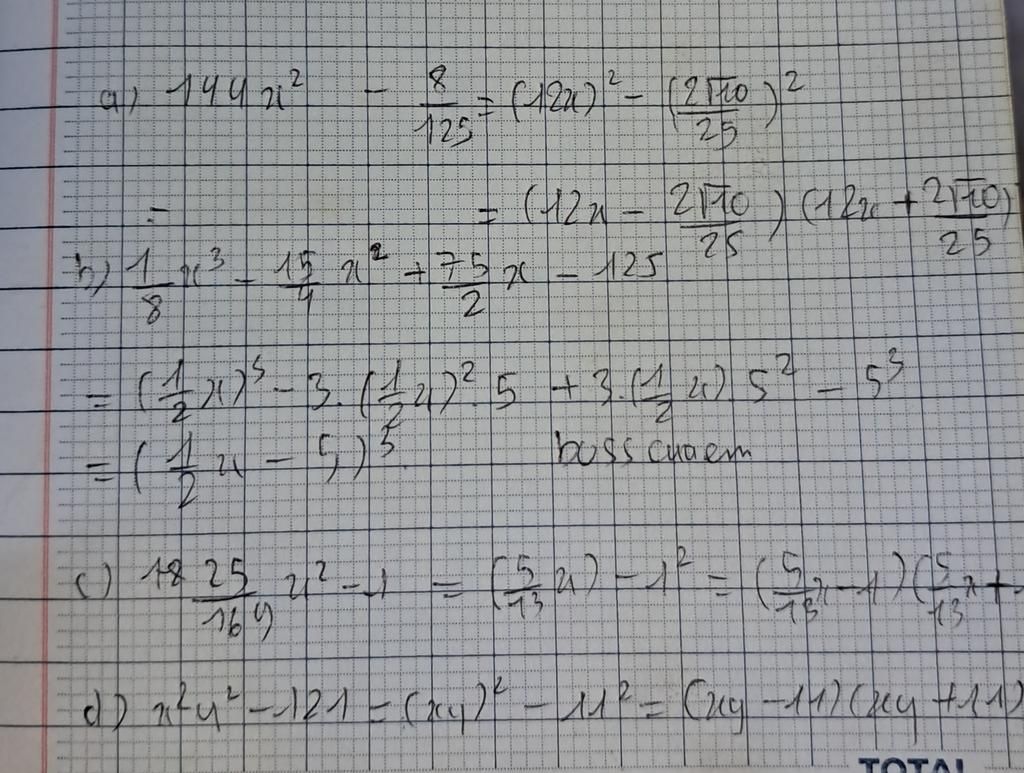 a) 144x² - 8/125 = (12x)² - (2√10/25)²
= = (12x - 2√10/25) (12x + 2√10/25)
b) 1/8 x³ - 15/4 x² + 75/2 x - 125
= (1/2 x)³ - 3.(1/2 x)².5 + 3.(1/2 x) 5² - 5³
= (1/2 x - 5)³
c) 25/169 x² - 1 = (5/13 x) - 1² = (5/13 x - 1) (5/13 x +
d) x²y² - 121 = (xy)² - 11² = (xy - 11) (xy + 11)
TOTAL